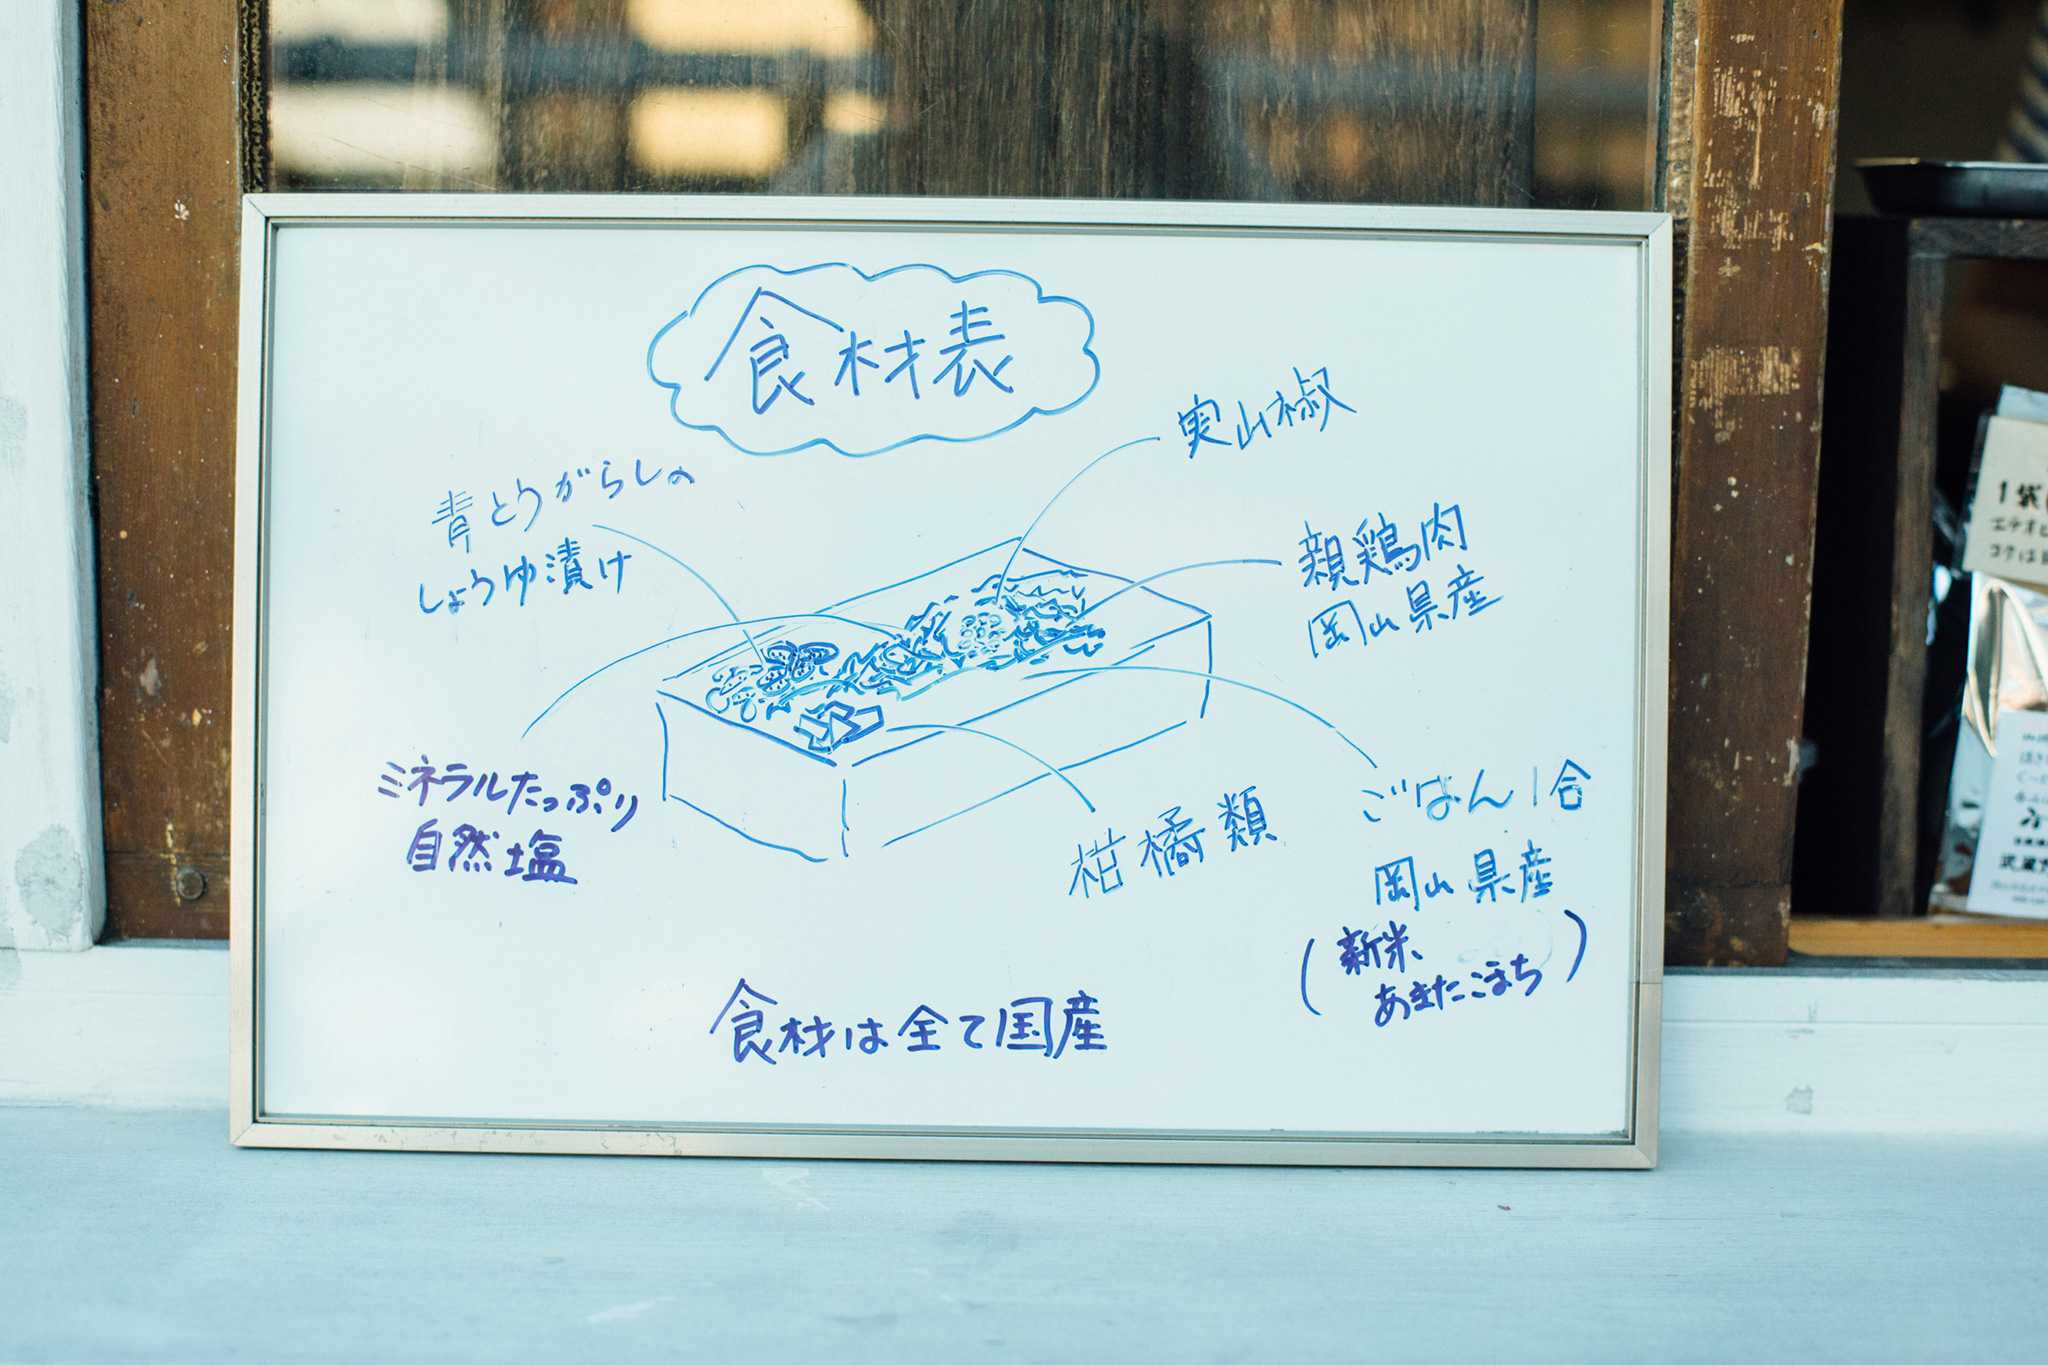 食材表
実山椒
青とうがらしの
しょうゆ漬け
親鶏肉
岡山県産
ミネラルたっぷり
自然塩
柑橘類
ごはん1合
岡山県産
(新米
あきたこまち)
食材は全て国産
1袋